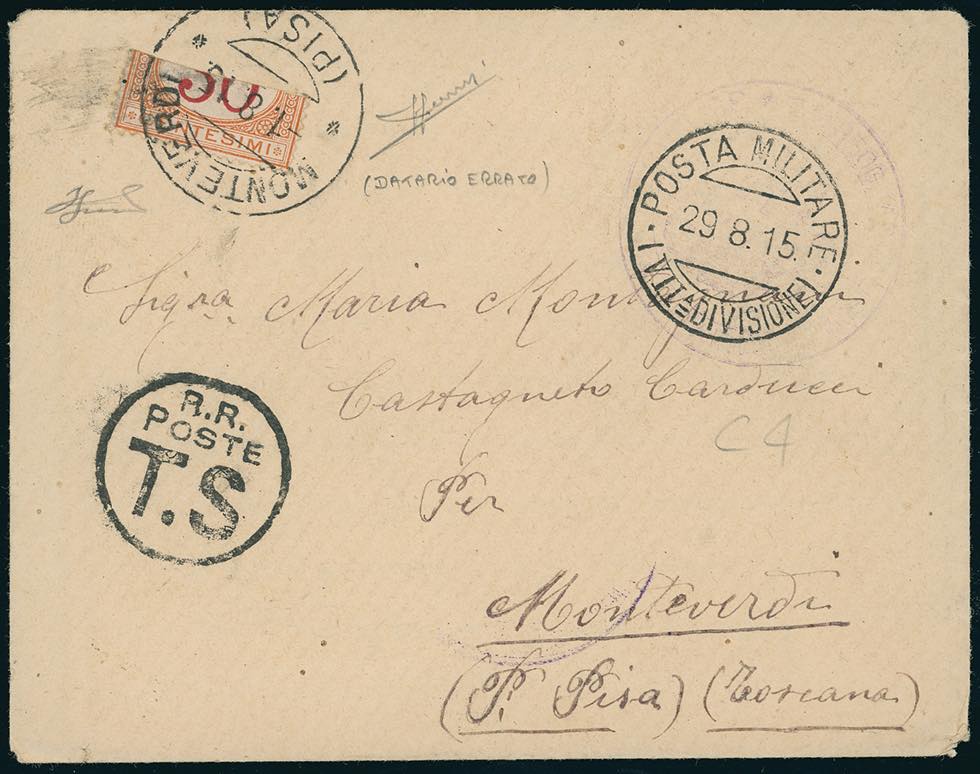 MONTEVERDI
(PISA)
TESIMI
(DATARIO ERRATO)
POSTA MILITARE
29 8. 15.
(VII DIVISIONE)
Sigra Maria
Castagneto Carducci
C4
R.R.
POSTE
T.S
Per
Monteverdi
(P. Pisa) (Toscana)